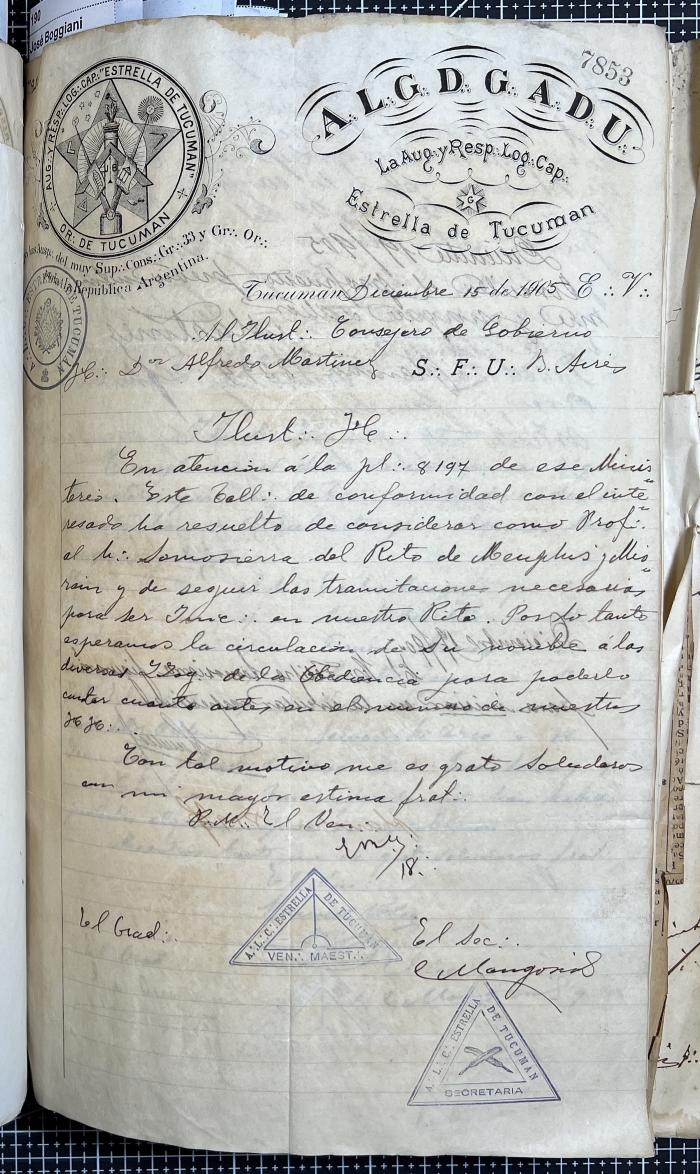 190
José Boggiani
7853
AUG∴ Y RESP∴ LOG∴ CAP∴ "ESTRELLA DE TUCUMAN"
OR∴ DE TUCUMAN
A∴L∴G∴D∴G∴A∴D∴U∴
La Aug∴ y Resp∴ Log∴ Cap∴
G
Estrella de Tucuman
los Ausp∴ del muy Sup∴ Cons∴ Gr∴ 33 y Gr∴ Or∴
República Argentina.
Tucumán Diciembre 15 de 1905 E∴ V∴
Al Ilust∴ Consejero de Gobierno
H∴ Dor Alfredo Martinez S∴ F∴ U∴ B. Aires
Ilust∴ H∴
En atencion á la pl∴ 8197 de ese Minis=
terio. Este Tall∴ de conformidad con el inte=
resado ha resuelto de considerar como Prof∴
al h∴ Somosierra del Rito de Menphis y Mis=
rain y de seguir las tramitaciones necesarias
para ser Inic∴ en nuestro Rito. Por lo tanto
esperamos la circulacion de su nombre á las
diversas Llog∴ de la Obediencia para poderlo
contar cuanto antes en el numero de nuestros
HH∴
Con tal motivo me es grato saludaros
con mi mayor estima frat∴
P. M∴ El Ven∴
18∴
El Grad∴
A∴ L∴ C∴ ESTRELLA DE TUCUMAN
VEN∴ MAEST∴
El Sec∴
A∴ L∴ C∴ ESTRELLA DE TUCUMAN
SECRETARIA